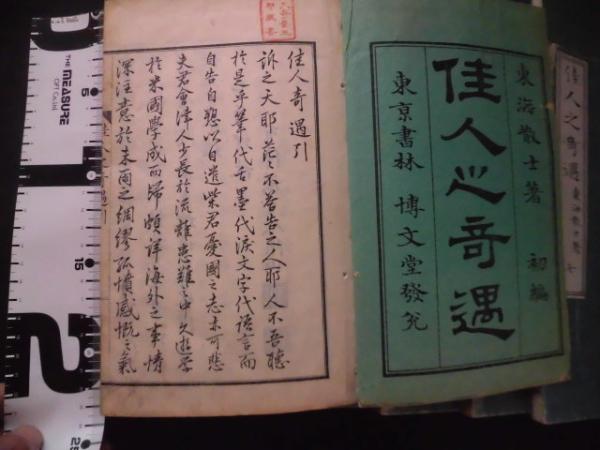 佳人之奇遇
東海散士著 初編
佳人之奇遇
東京書林 博文堂發兌
佳人奇遇引
訴之天耶茫々不答告之人耶人不吾聽
於是乎筆代舌墨代淚文字代語言而
自告自愬以自遣柴君憂國之志亦可悲
夫君會津人少長於流離患難之中久遊学
於米國學成而歸頗詳海外之事情
深注意於未雨之綢繆孤憤感慨之氣
THE MEASURE
5
15
25